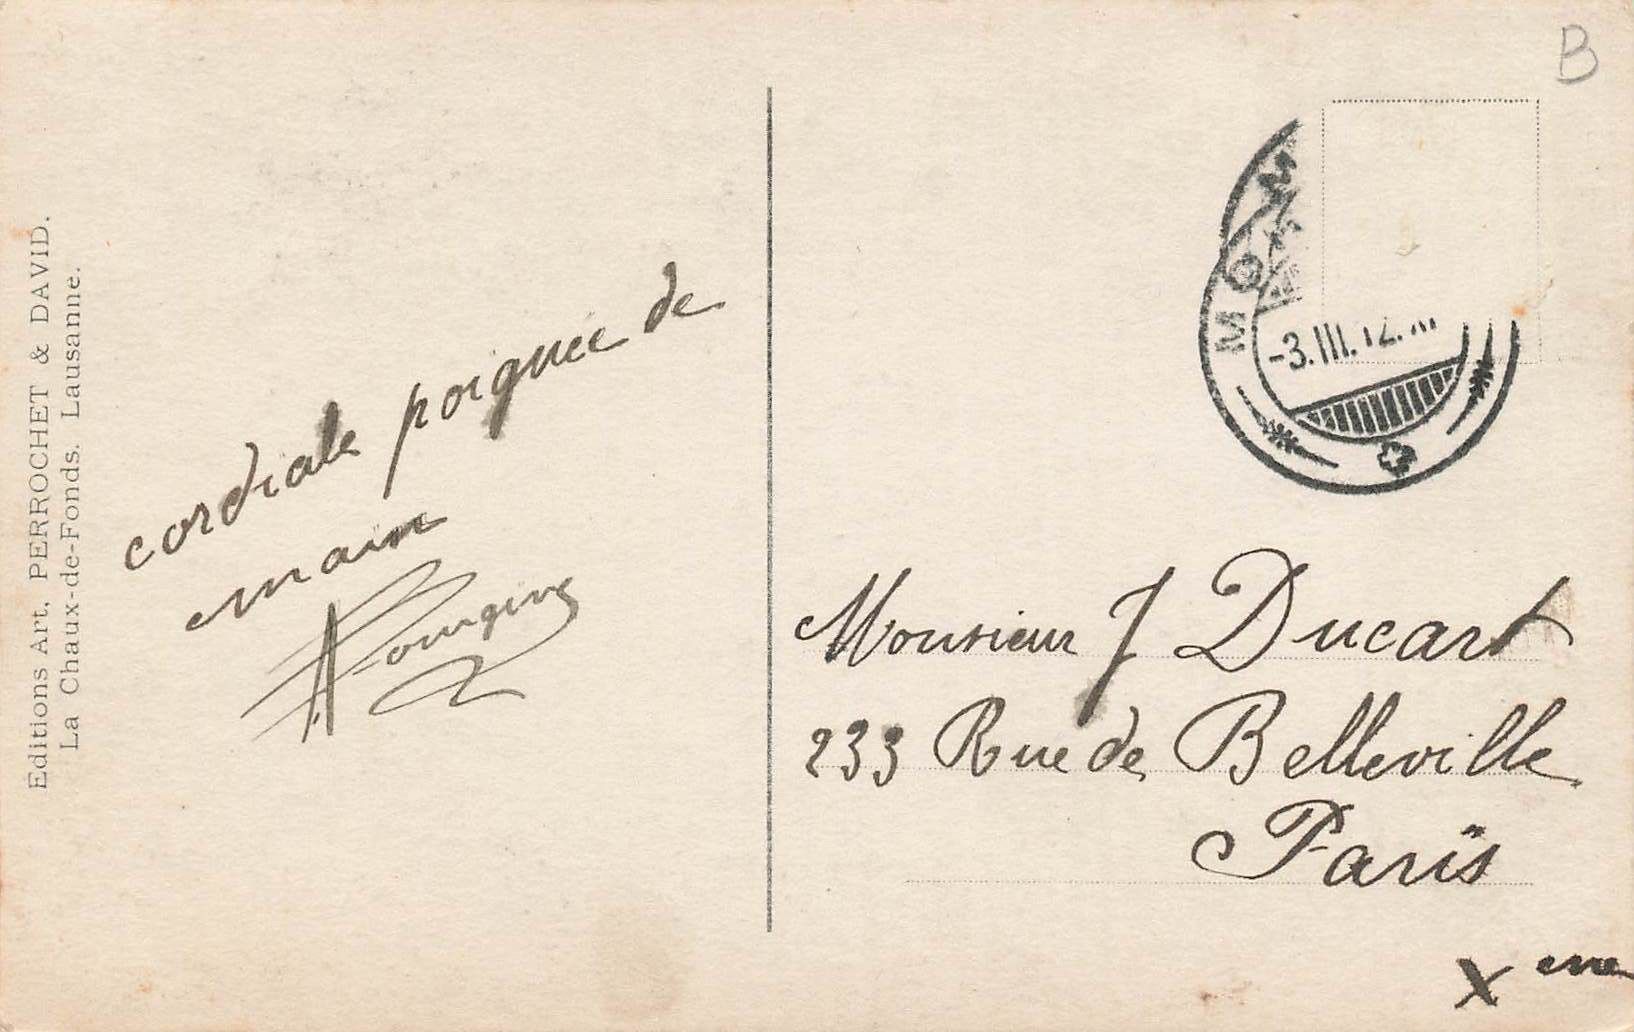 B
Editions Art. PERROCHET & DAVID.
La Chaux-de-Fonds. Lausanne.
cordiale poignée de
main
MO
-3.III.12.
Monsieur J Ducart
233 Rue de Belleville
Paris
Xeme